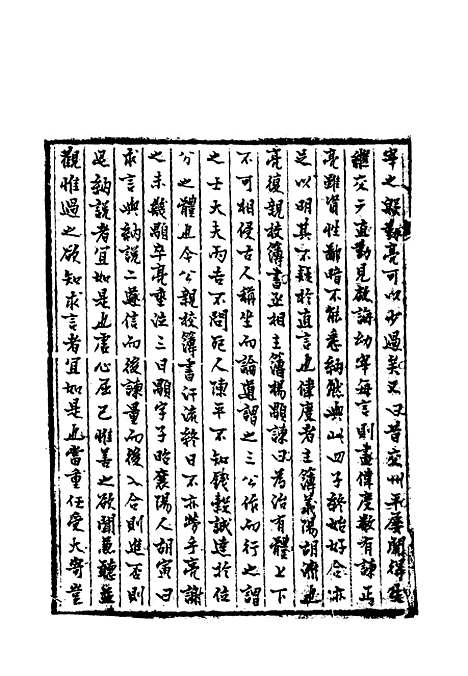 宰之殷勤亮可以少過矣又曰昔交州平屢聞得失
繼交元直勤見啟誨幼宰每言則盡偉度數有諫止
亮雖資性鄙暗不能悉納然與此四子終始好合亦
足以明其不疑於直言也偉度者主簿義陽胡濟也
亮復親校簿書丞相主簿楊顒諫曰為治有體上下
不可相侵古人稱坐而論道謂之三公作而行之謂
之士大夫丙吉不問死人陳平不知錢穀誠達於位
分之體也今公親校簿書汗流終日不亦勞乎亮謝
之未幾顒卒亮垂泣三日顒字子昭襄陽人胡寅曰
求言與納說二蔽信而後諫量而後入合則進否則
足納說者宜如是也虛心屈己惟善之欲聞兼聽並
觀惟過之欲知求言者宜如是也當重任受大寄豈